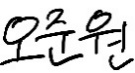 오준원